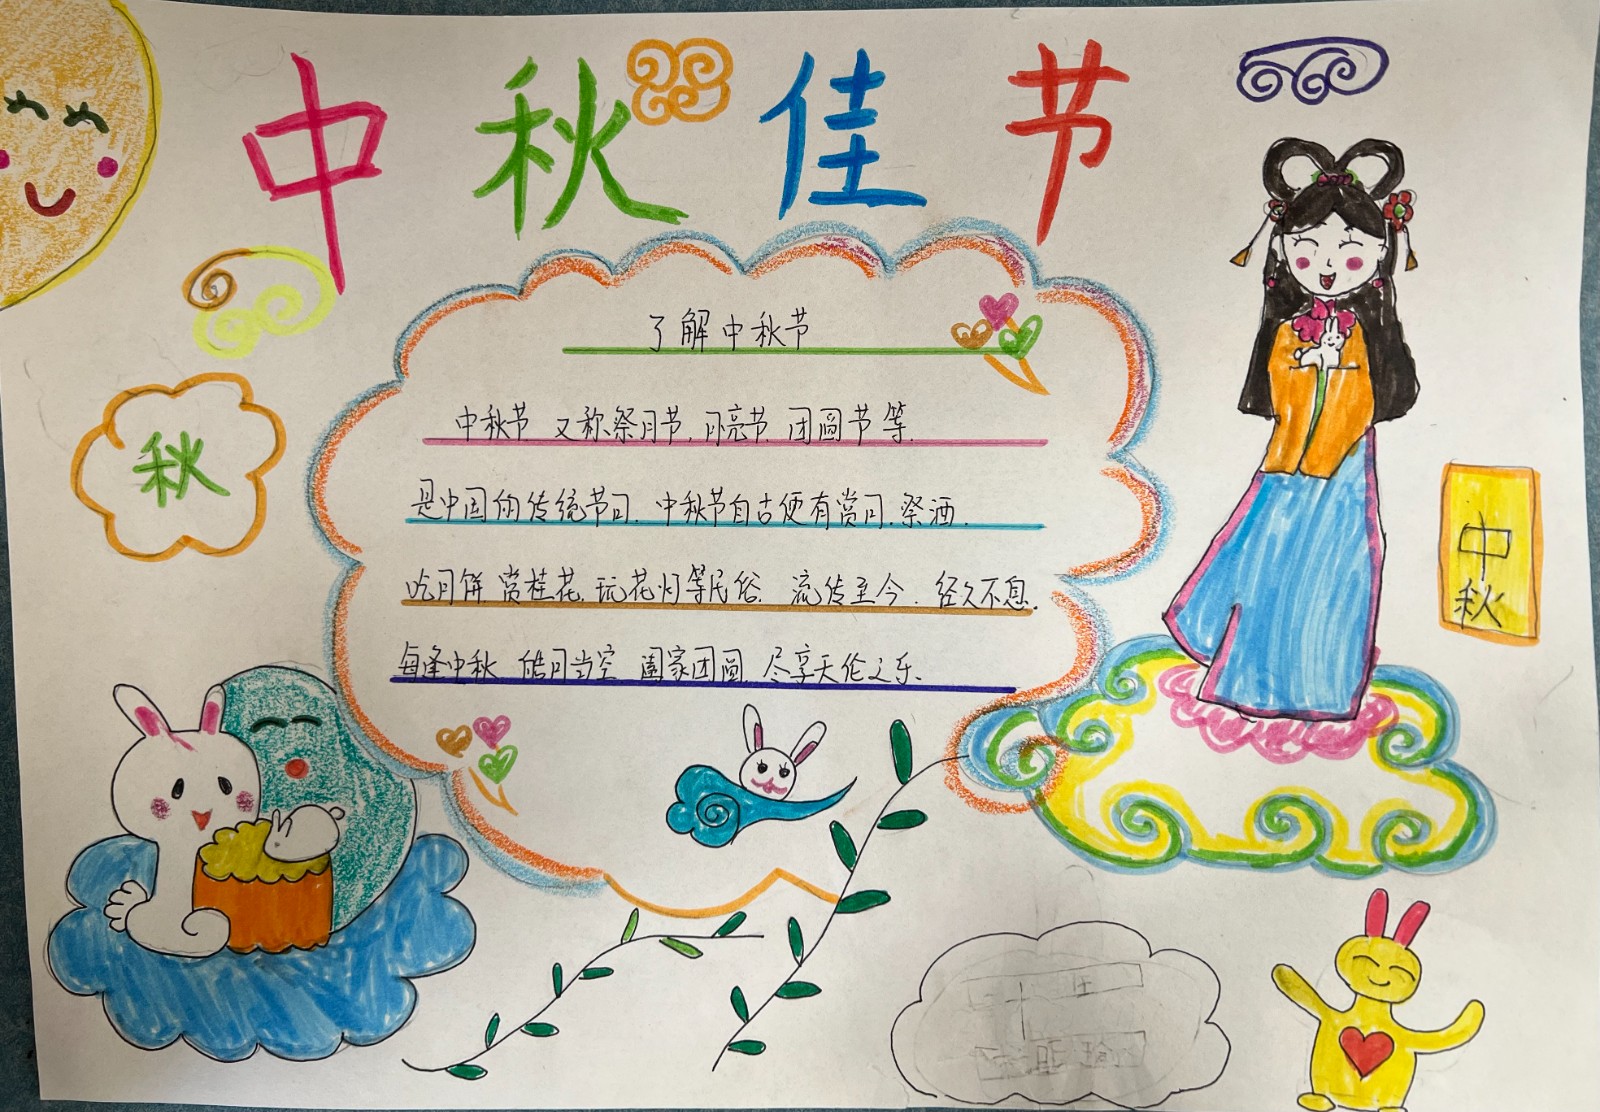 中秋佳节
了解中秋节
中秋节 又称祭月节,月亮节.团圆节等.
是中国的传统节日.中秋节自古便有赏月.祭酒.
吃月饼.赏桂花.玩花灯等民俗.流传至今.经久不息.
每逢中秋 皓月当空 阖家团圆.尽享天伦之乐.
秋
中秋